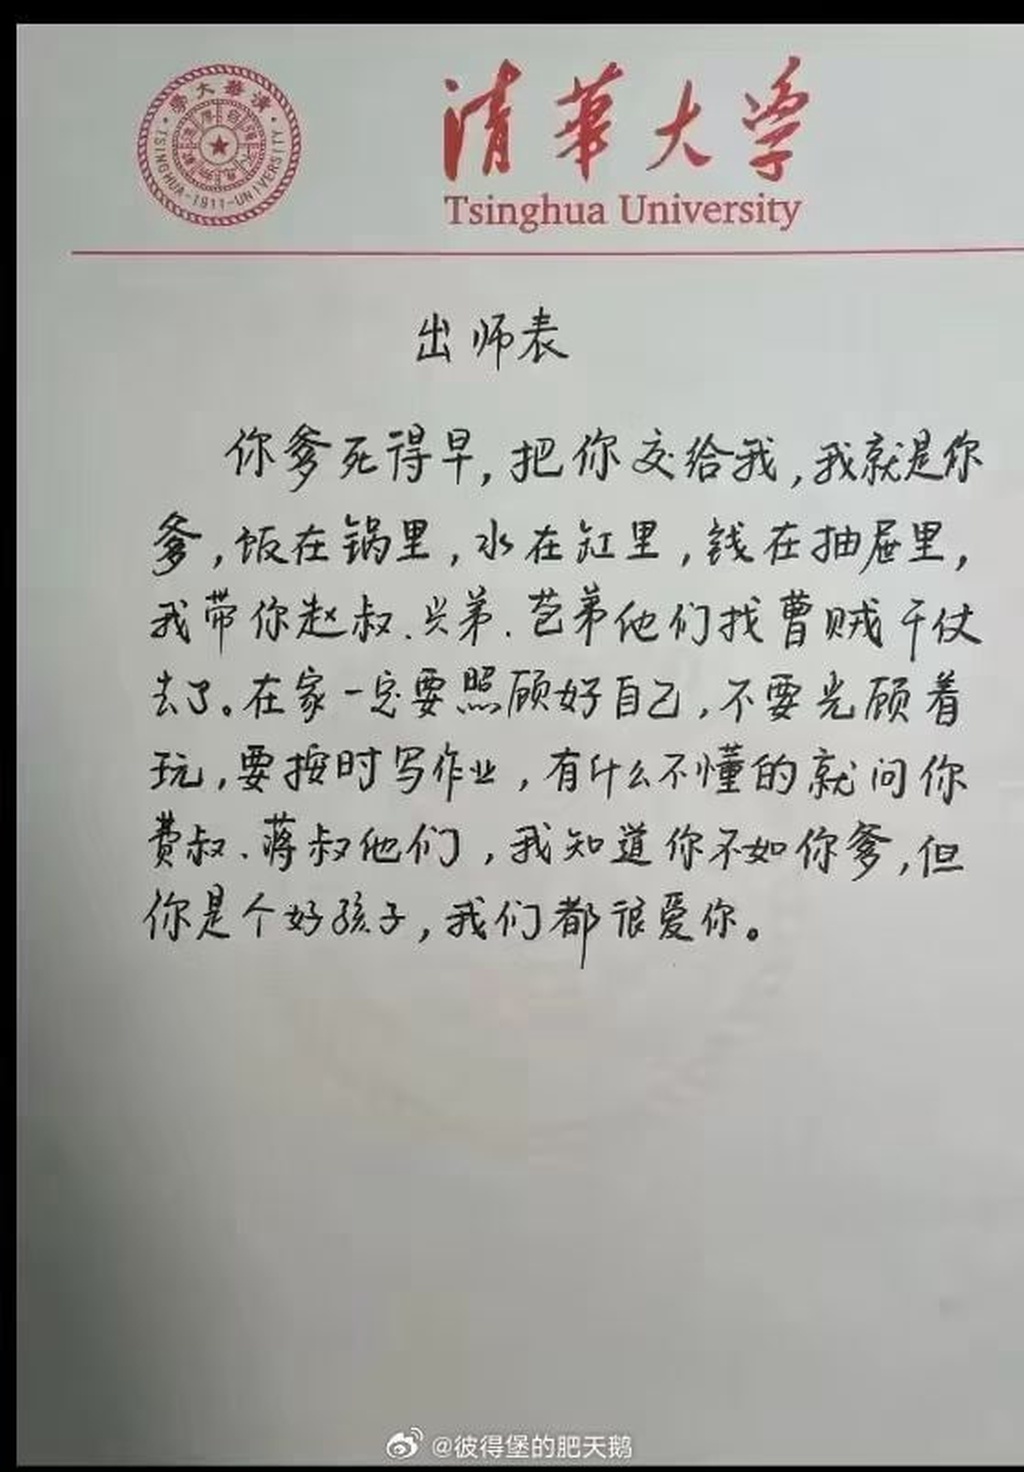 清華大学
Tsinghua University
清華大學
TSINGHUA-1911-UNIVERSITY
出师表
你爹死得早，把你交给我，我就是你
爹，饭在锅里，水在缸里，钱在抽屉里，
我带你赵叔、兴弟、苞弟他们找曹贼干仗
去了。在家一定要照顾好自己，不要光顾着
玩，要按时写作业，有什么不懂的就问你
费叔、蒋叔他们，我知道你不如你爹，但
你是个好孩子，我们都很爱你。
@彼得堡的肥天鹅